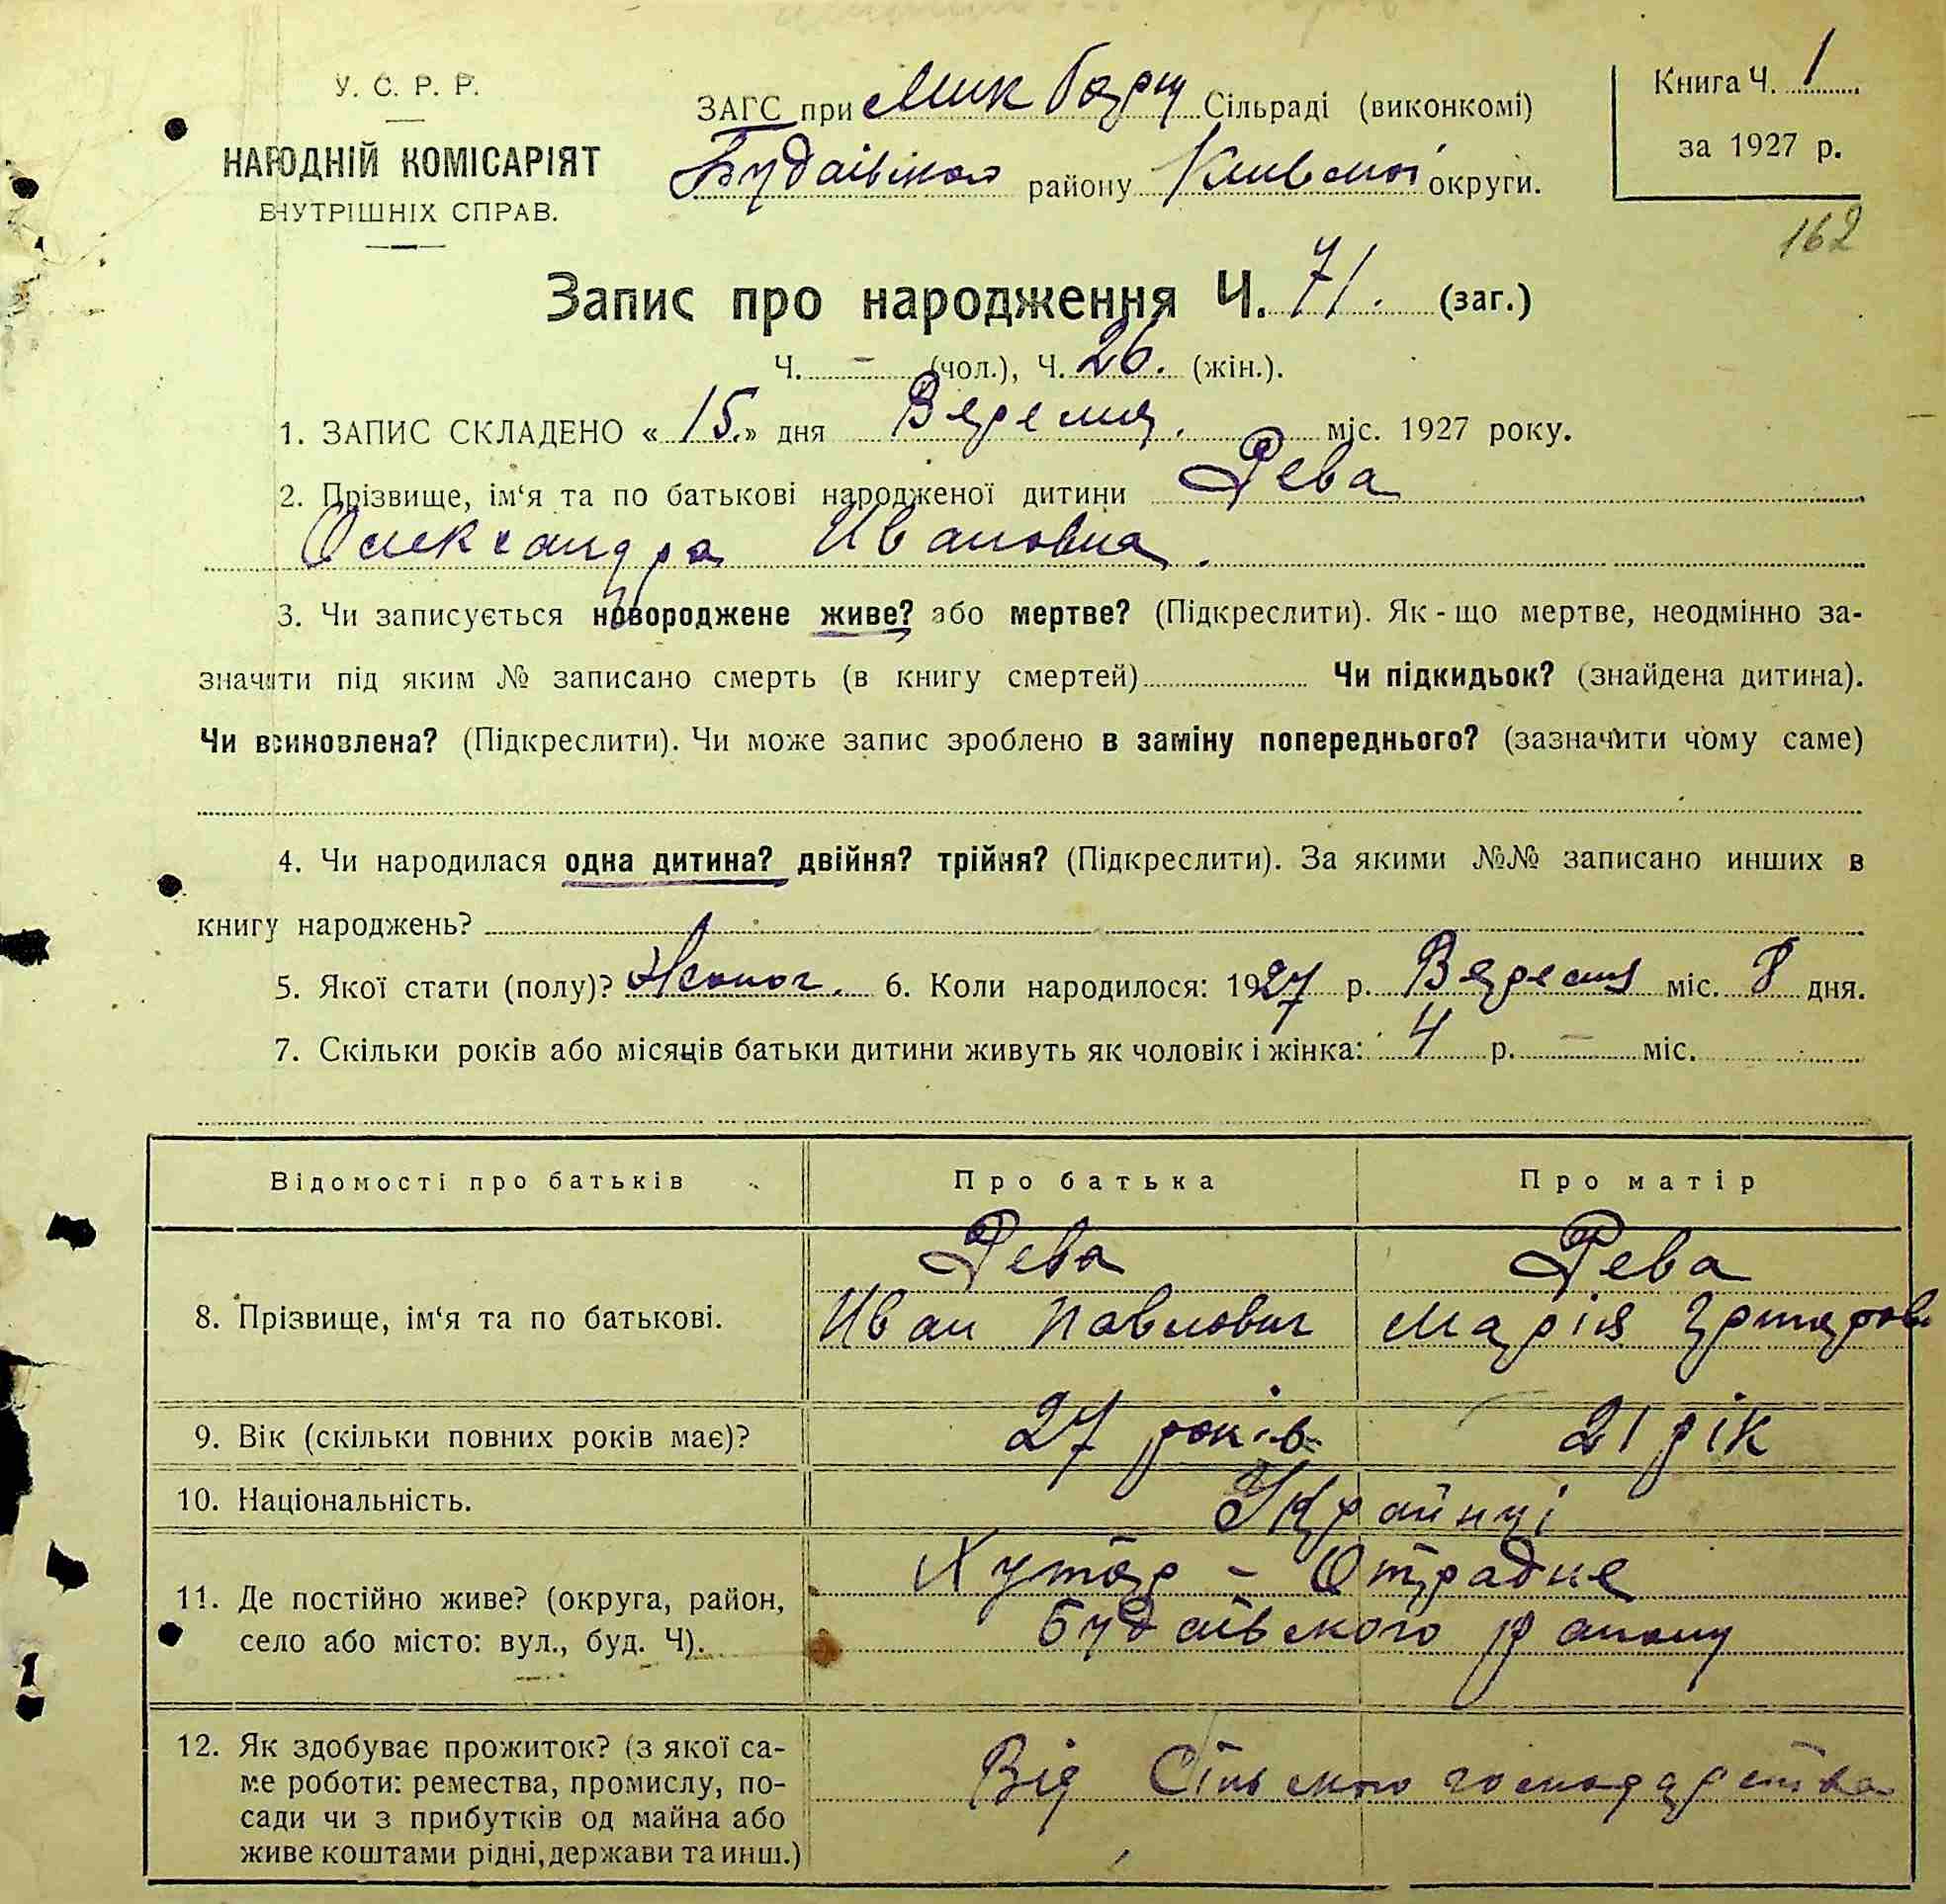 У. С. Р. Р.
НАРОДНІЙ КОМІСАРІЯТ
ВНУТРІШНІХ СПРАВ.
ЗАГС при Мик Борщ Сільраді (виконкомі)
Будаівсько району Київської округи.
Книга Ч. 1
за 1927 р.
162
Запис про народження Ч. 71. (заг.)
Ч. – (чол.), Ч. 26. (жін.).
1. ЗАПИС СКЛАДЕНО « 15. » дня Вересня. міс. 1927 року.
2. Прізвище, ім‘я та по батькові народженої дитини Рева
Олександра Ивановна.
3. Чи записується новороджене живе? або мертве? (Підкреслити). Як - що мертве, неодмінно за-
значити під яким № записано смерть (в книгу смертей) Чи підкидьок? (знайдена дитина).
Чи всиновлена? (Підкреслити). Чи може запис зроблено в заміну попереднього? (зазначити чому саме)
4. Чи народилася одна дитина? двійня? трійня? (Підкреслити). За якими №№ записано инших в
книгу народжень?
5. Якої стати (полу)? Жоноч. 6. Коли народилося: 1927 р. Вересня міс. 8 дня.
7. Скільки років або місяців батьки дитини живуть як чоловік і жінка: 4 р. – міс.
Відомості про батьків Про батька Про матір
8. Прізвище, ім‘я та по батькові. Рева Рева
Иван Павлович Марія
9. Вік (скільки повних років має)? 27 років 21 рік
10. Національність. Украинці
11. Де постійно живе? (округа, район, Хутор – Отрадне
село або місто: вул., буд. Ч). Будаівського району
12. Як здобуває прожиток? (з якої са-
ме роботи: ремества, промислу, по- Від Сільського господарства
сади чи з прибутків од майна або
живе коштами рідні, держави та инш.)